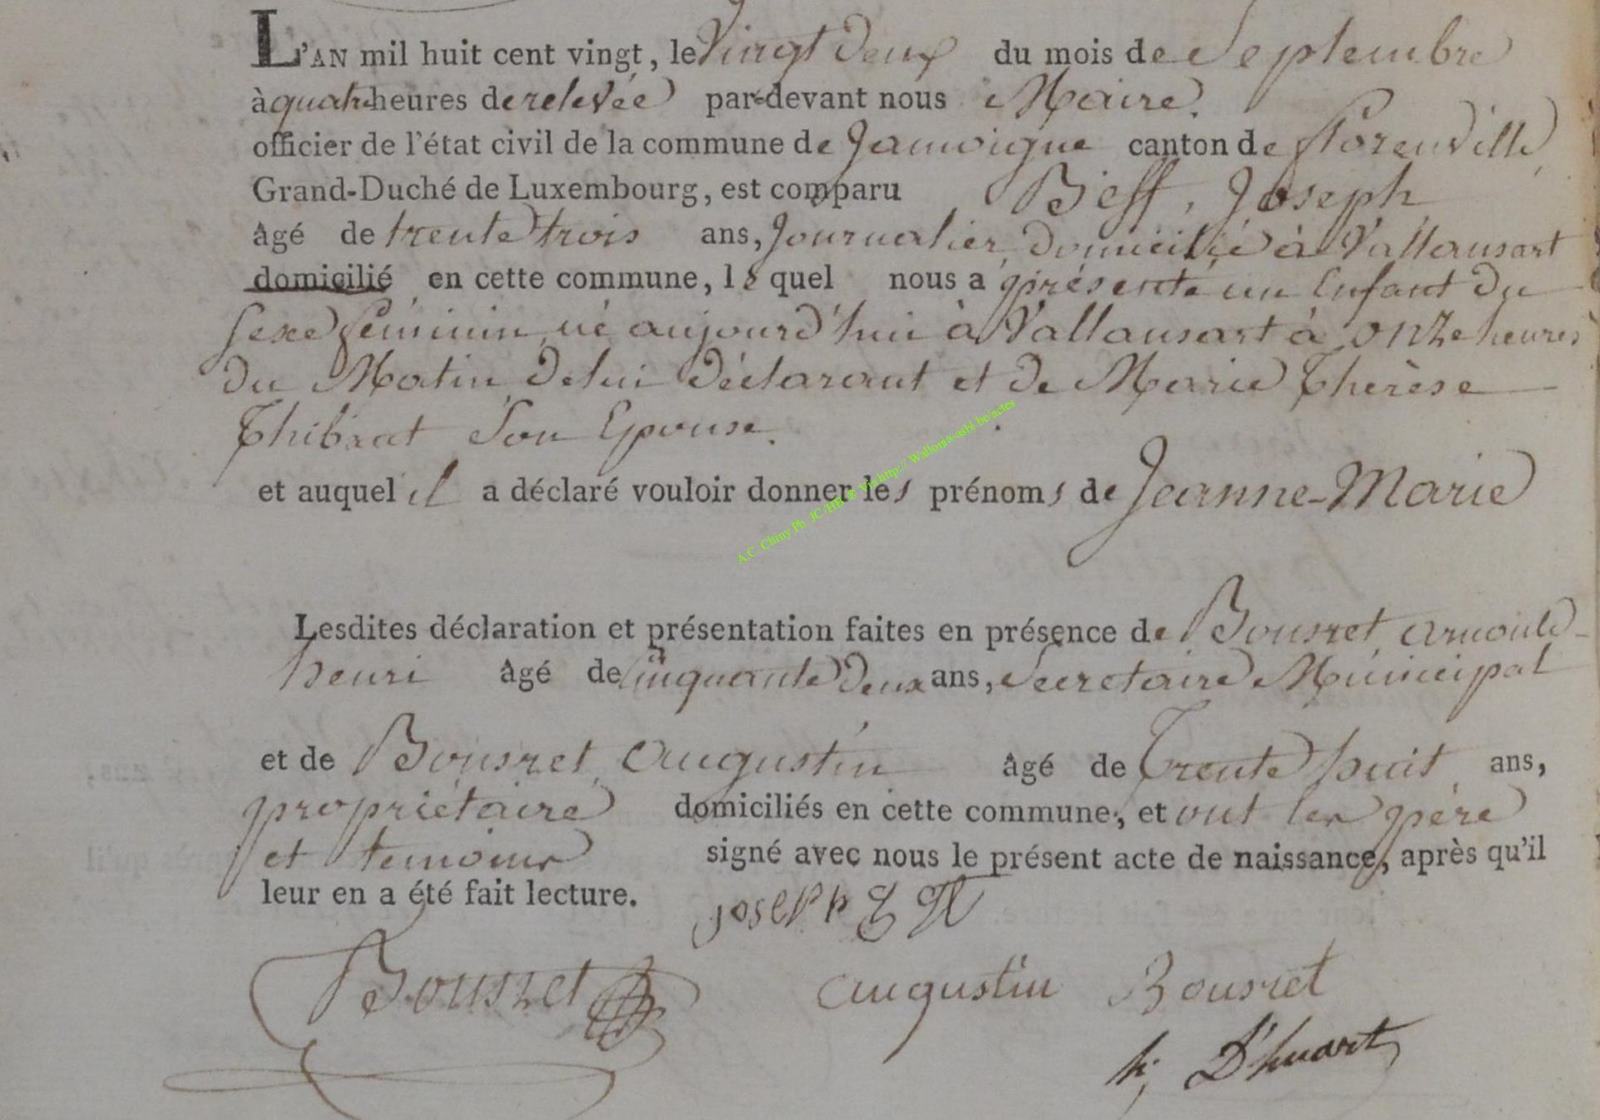 L'AN mil huit cent vingt, le Vingt deux du mois de Septembre
à quatre heures de relevée par-devant nous Maire
officier de l'état civil de la commune de Jamoigne canton de florenville
Grand-Duché de Luxembourg, est comparu Bieff, Joseph
âgé de trente trois ans, Journalier, domicilié à Vallansart
domicilié en cette commune, lequel nous a présenté un Enfant du
sexe féminin né aujourd'hui à Vallansart à onze heures
du Matin de lui déclarant et de Marie Thérèse
Son Epouse.
et auquel il a déclaré vouloir donner les prénoms de Jeanne-Marie
Lesdites déclaration et présentation faites en présence de Bousret, arnould
henri âgé de cinquante deux ans, Secretaire Municipal
et de Bousret, augustin âgé de Trente huit ans,
propriétaire domiciliés en cette commune, et ont les père
et temoins signé avec nous le présent acte de naissance, après qu'il
leur en a été fait lecture.
joseph
Bousret
augustin Bousret
h; D'huart
A.C. Chiny Ph JC/HB © via http:// Wallonia-asbl.be/actes